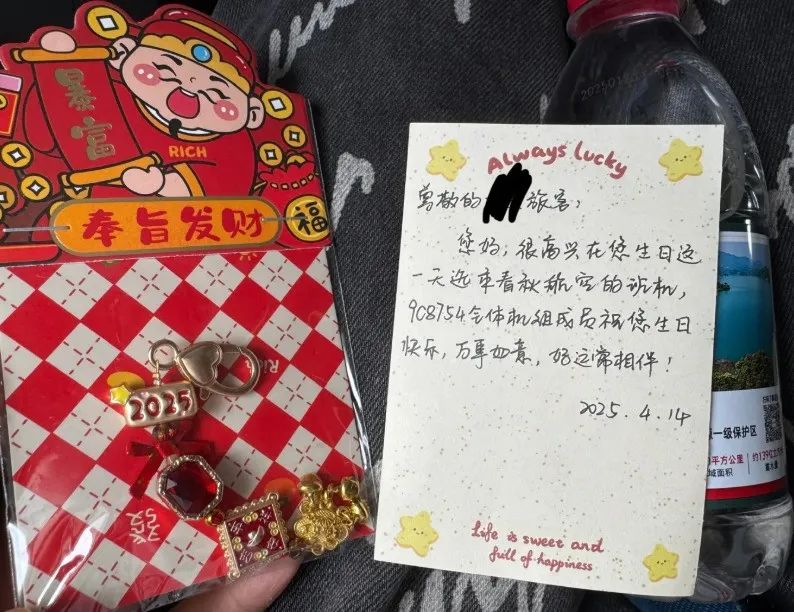 暴富
RICH
奉旨发财
福
Rich
2025
Always lucky
尊敬的 旅客:
您好,很高兴在您生日这
一天选乘春秋航空的航班,
9C8754全体机组成员祝您生日
快乐,万事如意,好运常相伴!
2025.4.14
Life is sweet and
full of happiness
一级保护区
平方公里
约139亿立方
域面积
蓄水量